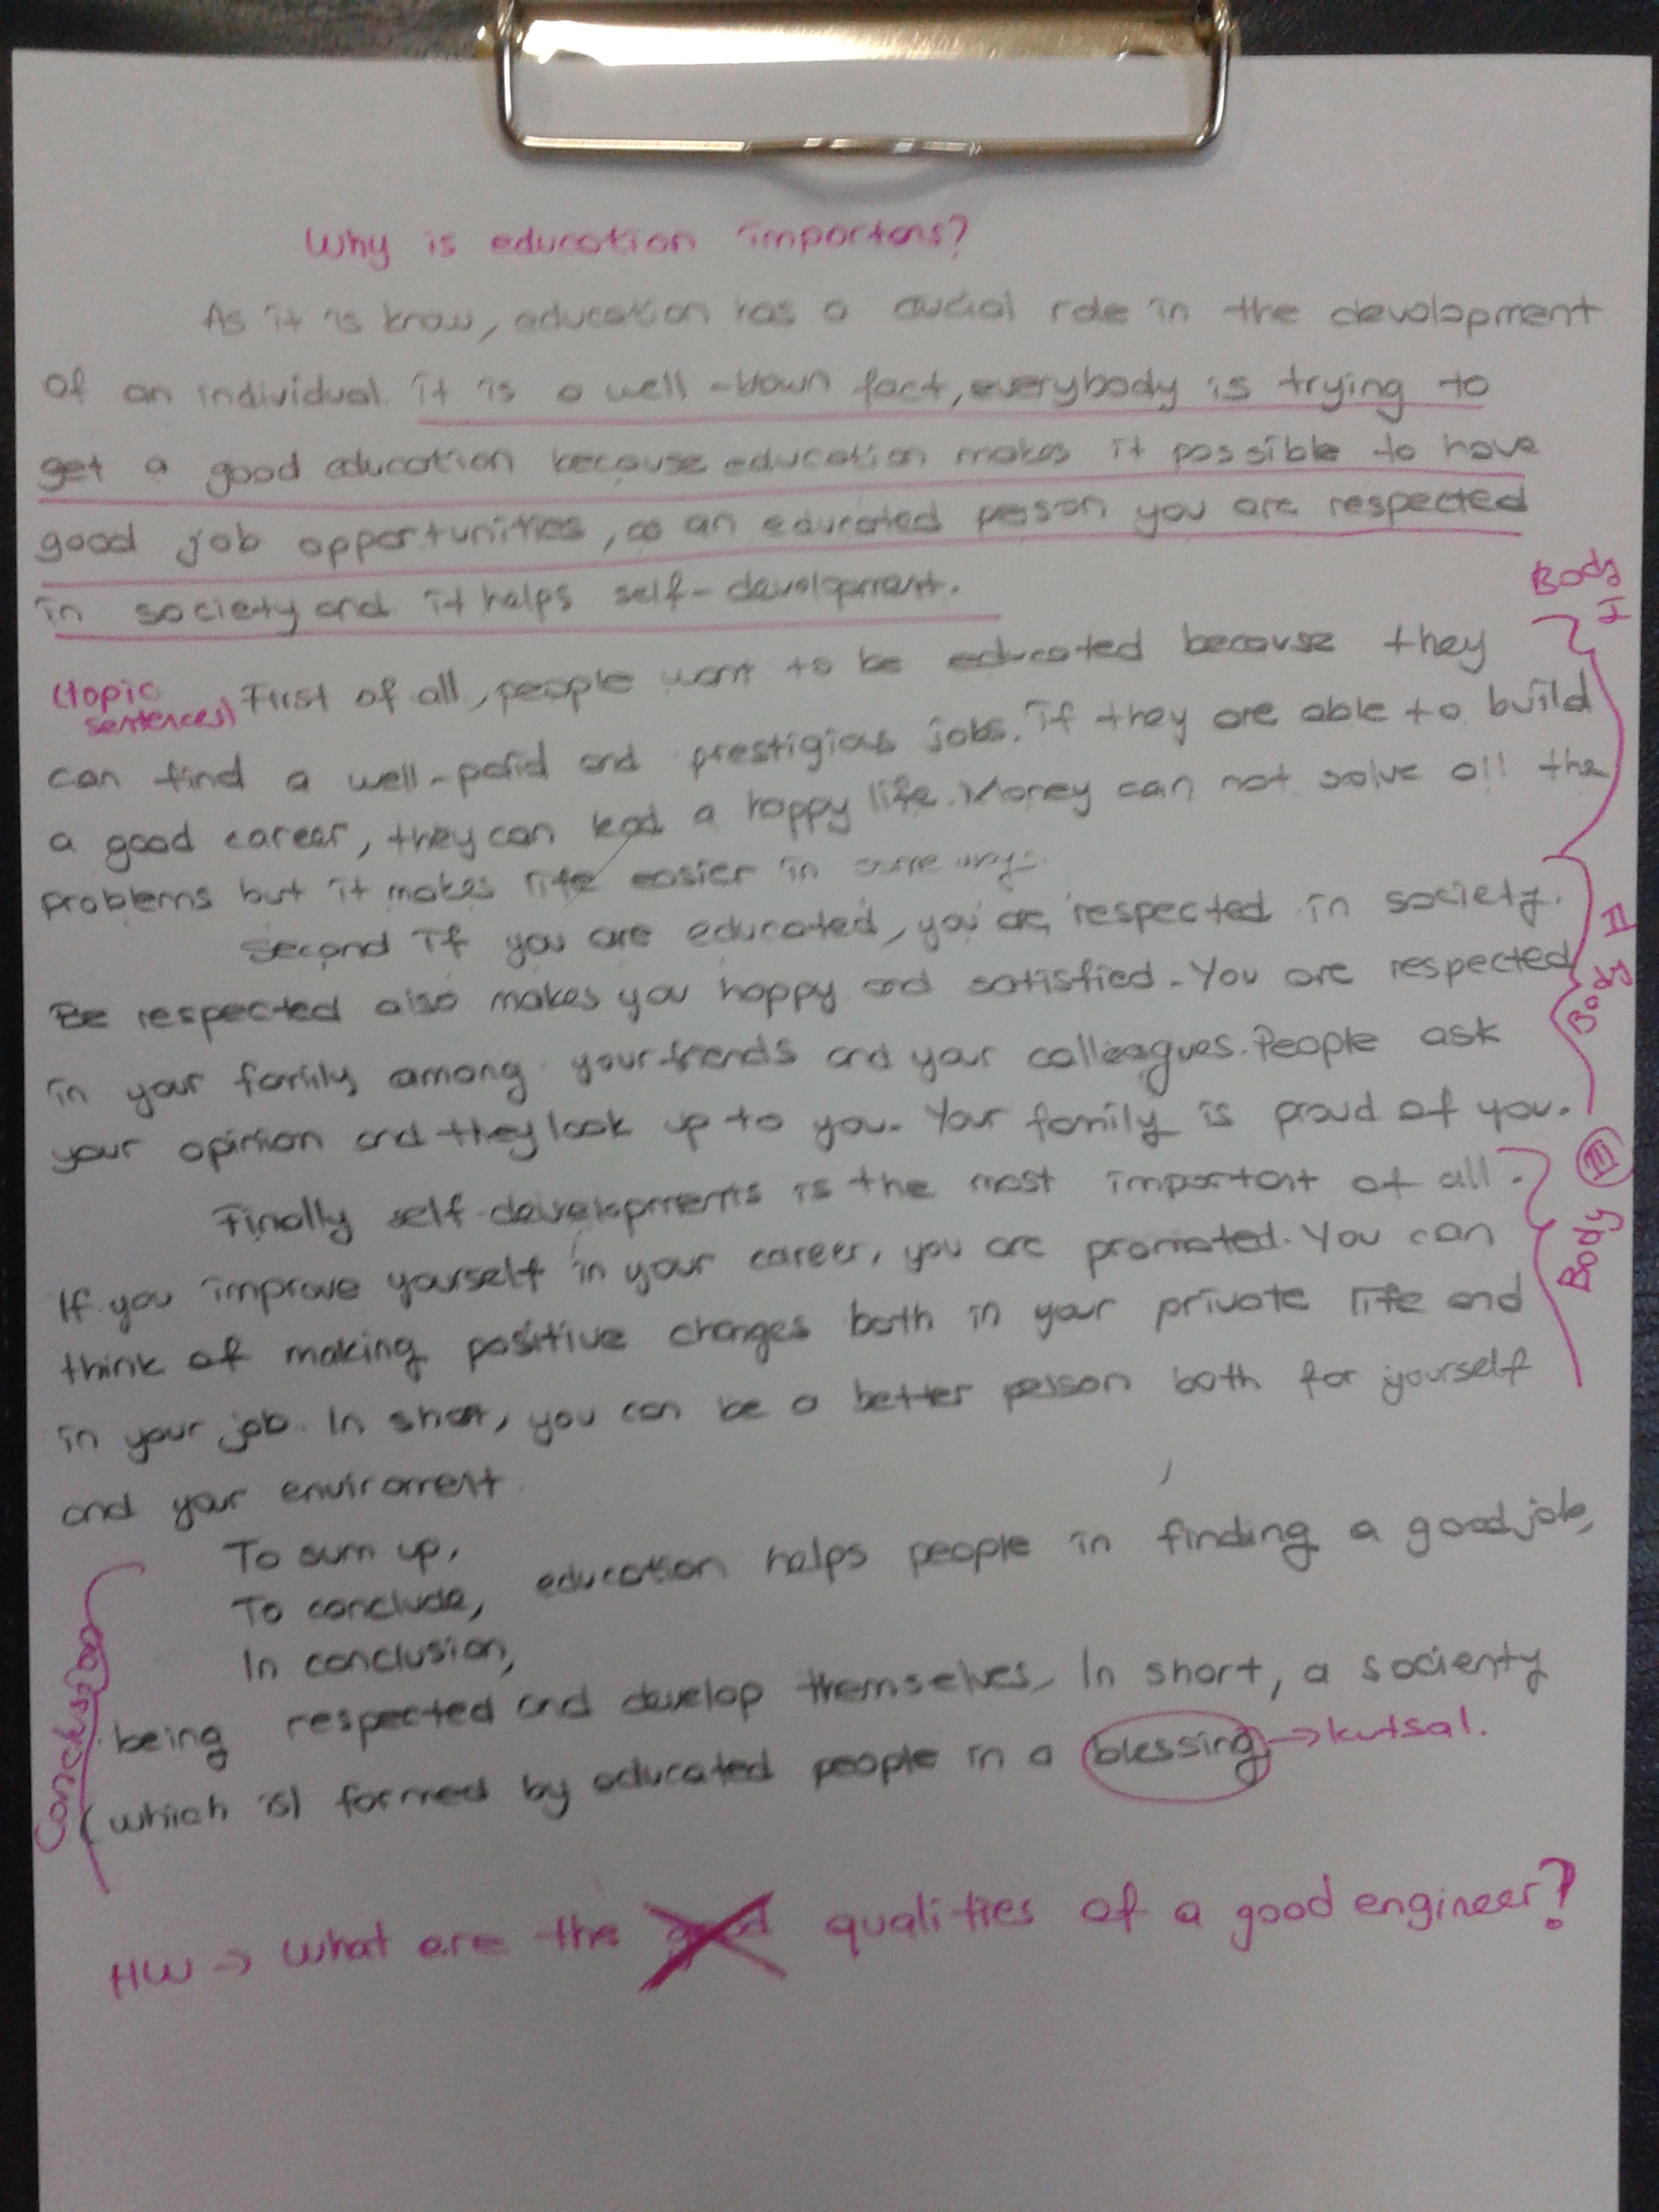 Why is education importans?
As it is know, education has a crucial role in the devolopment
of an individual. it is a well-known fact, everybody is trying to
get a good education because education makes it possible to have
good job opportunities, as an educated person you are respected
in society and it helps self-devolopment.
Body
I
(topic
sentences) First of all, people want to be educated because they
can find a well-paid and prestigious jobs. If they are able to build
a good career, they can lead a happy life. Money can not solve all the
problems but it makes life easier in some ways.
Second If you are educated, you are respected in society.
Body II
Be respected also makes you happy and satisfied. You are respected
in your family among your friends and your colleagues. People ask
your opinion and they look up to you. Your family is proud of you.
Body III
Finally self-developments is the most important of all.
If you improve yourself in your career, you are promoted. You can
think of making positive changes both in your private life and
in your job. In short, you can be a better person both for yourself
and your enviroment.
To sum up,
To conclude, education helps people in finding a good job,
In conclusion,
being respected and develop themselves. In short, a socienty
(which is) formed by educated people in a blessing → kutsal.
Conclusion
HW → What are the qualities of a good engineer?